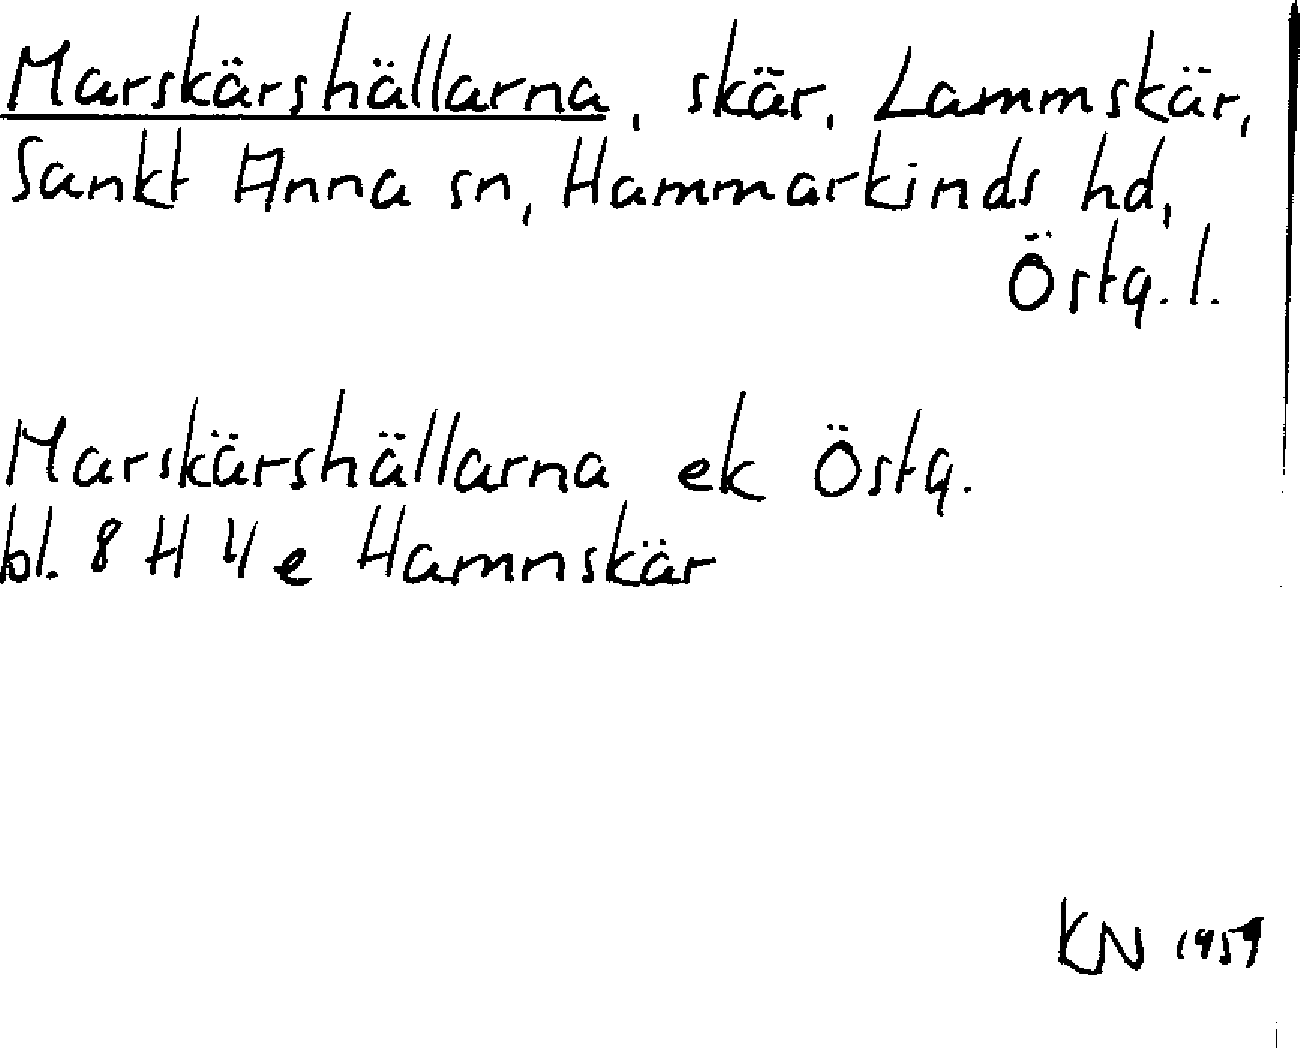 Marskärshällarna, skär, Lammskär,
Sankt Anna sn, Hammarkinds hd,
Östg. l.
Marskärshällarna ek Östg.
bl. 8 H 4 e Hamnskär
KN 1959